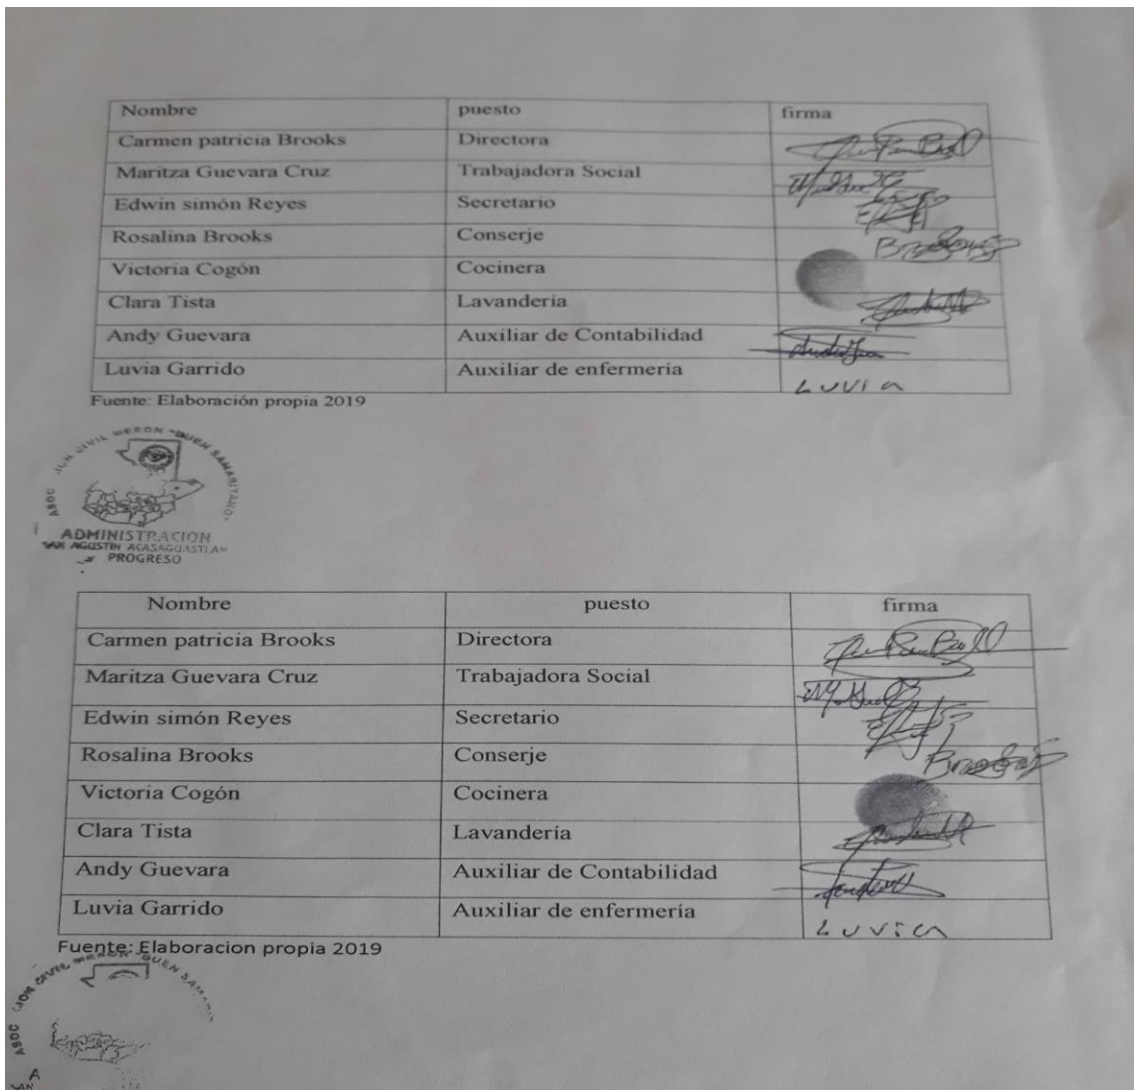 Nombre puesto firma
Carmen patricia Brooks Directora
Maritza Guevara Cruz Trabajadora Social
Edwin simón Reyes Secretario
Rosalina Brooks Conserje
Victoria Cogón Cocinera
Clara Tista Lavandería
Andy Guevara Auxiliar de Contabilidad
Luvia Garrido Auxiliar de enfermería Luvia
Fuente: Elaboración propia 2019
CIVIL MERON "BUEN SAMARITANO"
ADMINISTRACION
SAN AGUSTIN ACASAGUASTLAN
PROGRESO
Nombre puesto firma
Carmen patricia Brooks Directora
Maritza Guevara Cruz Trabajadora Social
Edwin simón Reyes Secretario
Rosalina Brooks Conserje
Victoria Cogón Cocinera
Clara Tista Lavandería
Andy Guevara Auxiliar de Contabilidad
Luvia Garrido Auxiliar de enfermería Luvia
Fuente: Elaboracion propia 2019
CIVIL MERON "BUEN